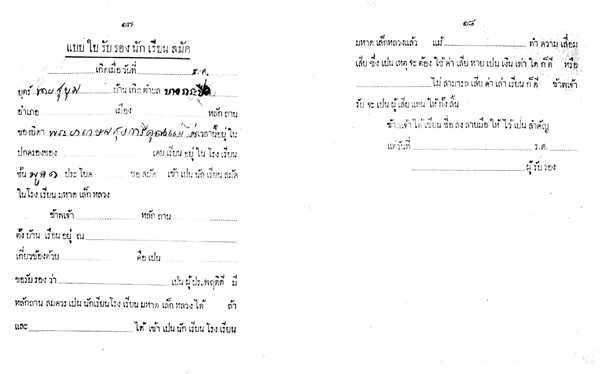 ๑๗
แบบ ใบ รับ รอง นัก เรียน สมัค
เกิดเมื่อ วันที่ ร.ศ.
บุตร์ บ้าน เกิด ตำบล บางกระบือ
อำเภอ เมือง หลัก ถาน
ของบิดา เวลานี้อยู่ ใน
ปกครองของ เคย เรียน อยู่ ใน โรง เรียน
ชั้น มูล ๑ ประ โยค ขอ สมัค เข้า เปน นัก เรียน สมัค
ในโรง เรียน มหาด เล็ก หลวง
ข้าพเจ้า หลัก ถาน
ตั้ง บ้าน เรือน อยู่ ณ
เกี่ยวข้องด้วย คือ เปน
ขอรับ รอง ว่า เปน ผู้ ประ พฤติดี มี
หลักถาน สมควร เปน นักเรียนโรง เรียน มหาด เล็กหลวง ได้ ถ้า
และ ได้ เข้า เปน นัก เรียน โรง เรียน
๑๘
มหาด เล็กหลวงแล้ว แม้ ทำ ความ เสื่อม
เสีย ซึ่ง เปน เหตุ จะ ต้อง ใช้ ค่า เสีย หาย เปน เงิน เท่า ใด ก็ ดี หรือ
ไม่ สามารถ เสีย ค่า เล่า เรียน ก็ ดี ข้าพเจ้า
รับ จะ เปน ผู้ เสีย แทน ให้ ทั้ง สิ้น
ข้าพเจ้า ได้ เขียน ชื่อ ลง ลายมือ ให้ ไว้ เปน สำคัญ
แต่วันที่ ร.ศ.
ผู้ รับ รอง